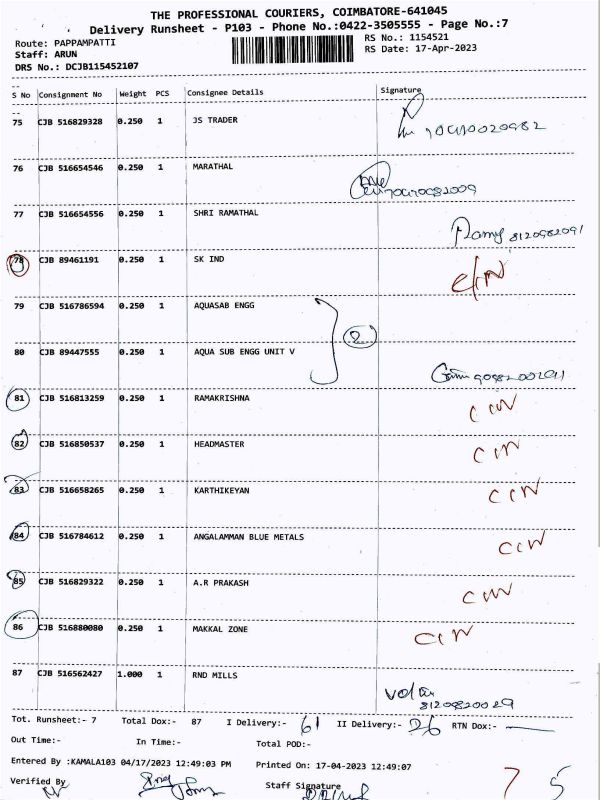 THE PROFESSIONAL COURIERS, COIMBATORE-641045
Delivery Runsheet - P103 - Phone No.:0422-3505555 - Page No.:7
Route: PAPPAMPATTI
RS No.: 1154521
Staff: ARUN
RS Date: 17-Apr-2023
DRS No.: DCJB115452107
S No Consignment No Weight PCS Consignee Details Signature
75 CJB 516829328 0.250 1 JS TRADER
76 CJB 516654546 0.250 1 MARATHAL
77 CJB 516654556 0.250 1 SHRI RAMATHAL
8120982091
78 CJB 89461191 0.250 1 SK IND
79 CJB 516786594 0.250 1 AQUASAB ENGG
2
80 CJB 89447555 0.250 1 AQUA SUB ENGG UNIT V
81 CJB 516813259 0.250 1 RAMAKRISHNA CIN
82 CJB 516850537 0.250 1 HEADMASTER CIN
83 CJB 516658265 0.250 1 KARTHIKEYAN CIN
84 CJB 516784612 0.250 1 ANGALAMMAN BLUE METALS CIN
85 CJB 516829322 0.250 1 A.R PRAKASH CIN
86 CJB 516880080 0.250 1 MAKKAL ZONE CIN
87 CJB 516562427 1.000 1 RND MILLS
8120920029
Tot. Runsheet:- 7 Total Dox:- 87 I Delivery:- 61 II Delivery:- 26 RTN Dox:-
Out Time:- In Time:- Total POD:-
Entered By :KAMALA103 04/17/2023 12:49:03 PM Printed On: 17-04-2023 12:49:07
Verified By Staff Signature
7 5